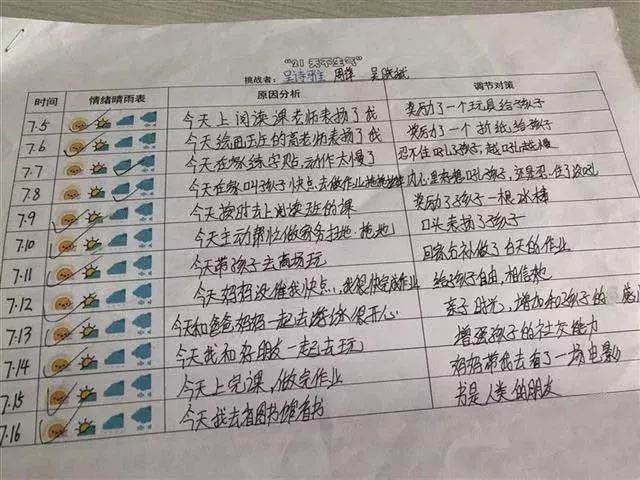 "21天不生气"
挑战者：吴诗雅 周萍
时间 情绪晴雨表 原因分析 调节对策
7.5 今天上阅读课老师表扬了我 奖励了一个玩具给孩子
7.6 今天绘画班的高老师表扬了我 奖励了一个折纸给孩子
7.7 今天在家练字贴，动作太慢了 忍不住吼了孩子，越吼越慢
7.8 今天在家叫孩子快点去做作业
7.9 今天按时去上阅读班的课 奖励了孩子一根冰棒
7.10 今天主动帮忙做家务扫地、拖地 口头表扬了孩子
7.11 今天带孩子去商场玩 回家后补做了白天的作业
7.12 今天妈妈没催我快点，我很快完成作业 给孩子自由，相信她
7.13 今天和爸爸妈妈一起去游泳很开心 亲子时光，增加和孩子的
7.14 今天我和好朋友一起去玩 增强孩子的社交能力
7.15 今天上完课，做完作业 妈妈带我去看了一场电影
7.16 今天我去省图书馆看书 书是人类的朋友